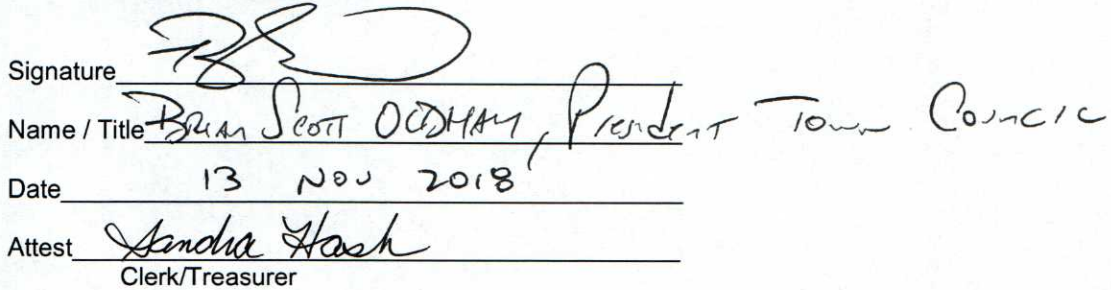 Signature
Name / Title Brian Scott OLDHAM, President Town Council
Date 13 NOV 2018
Attest Sandra Hash
Clerk/Treasurer